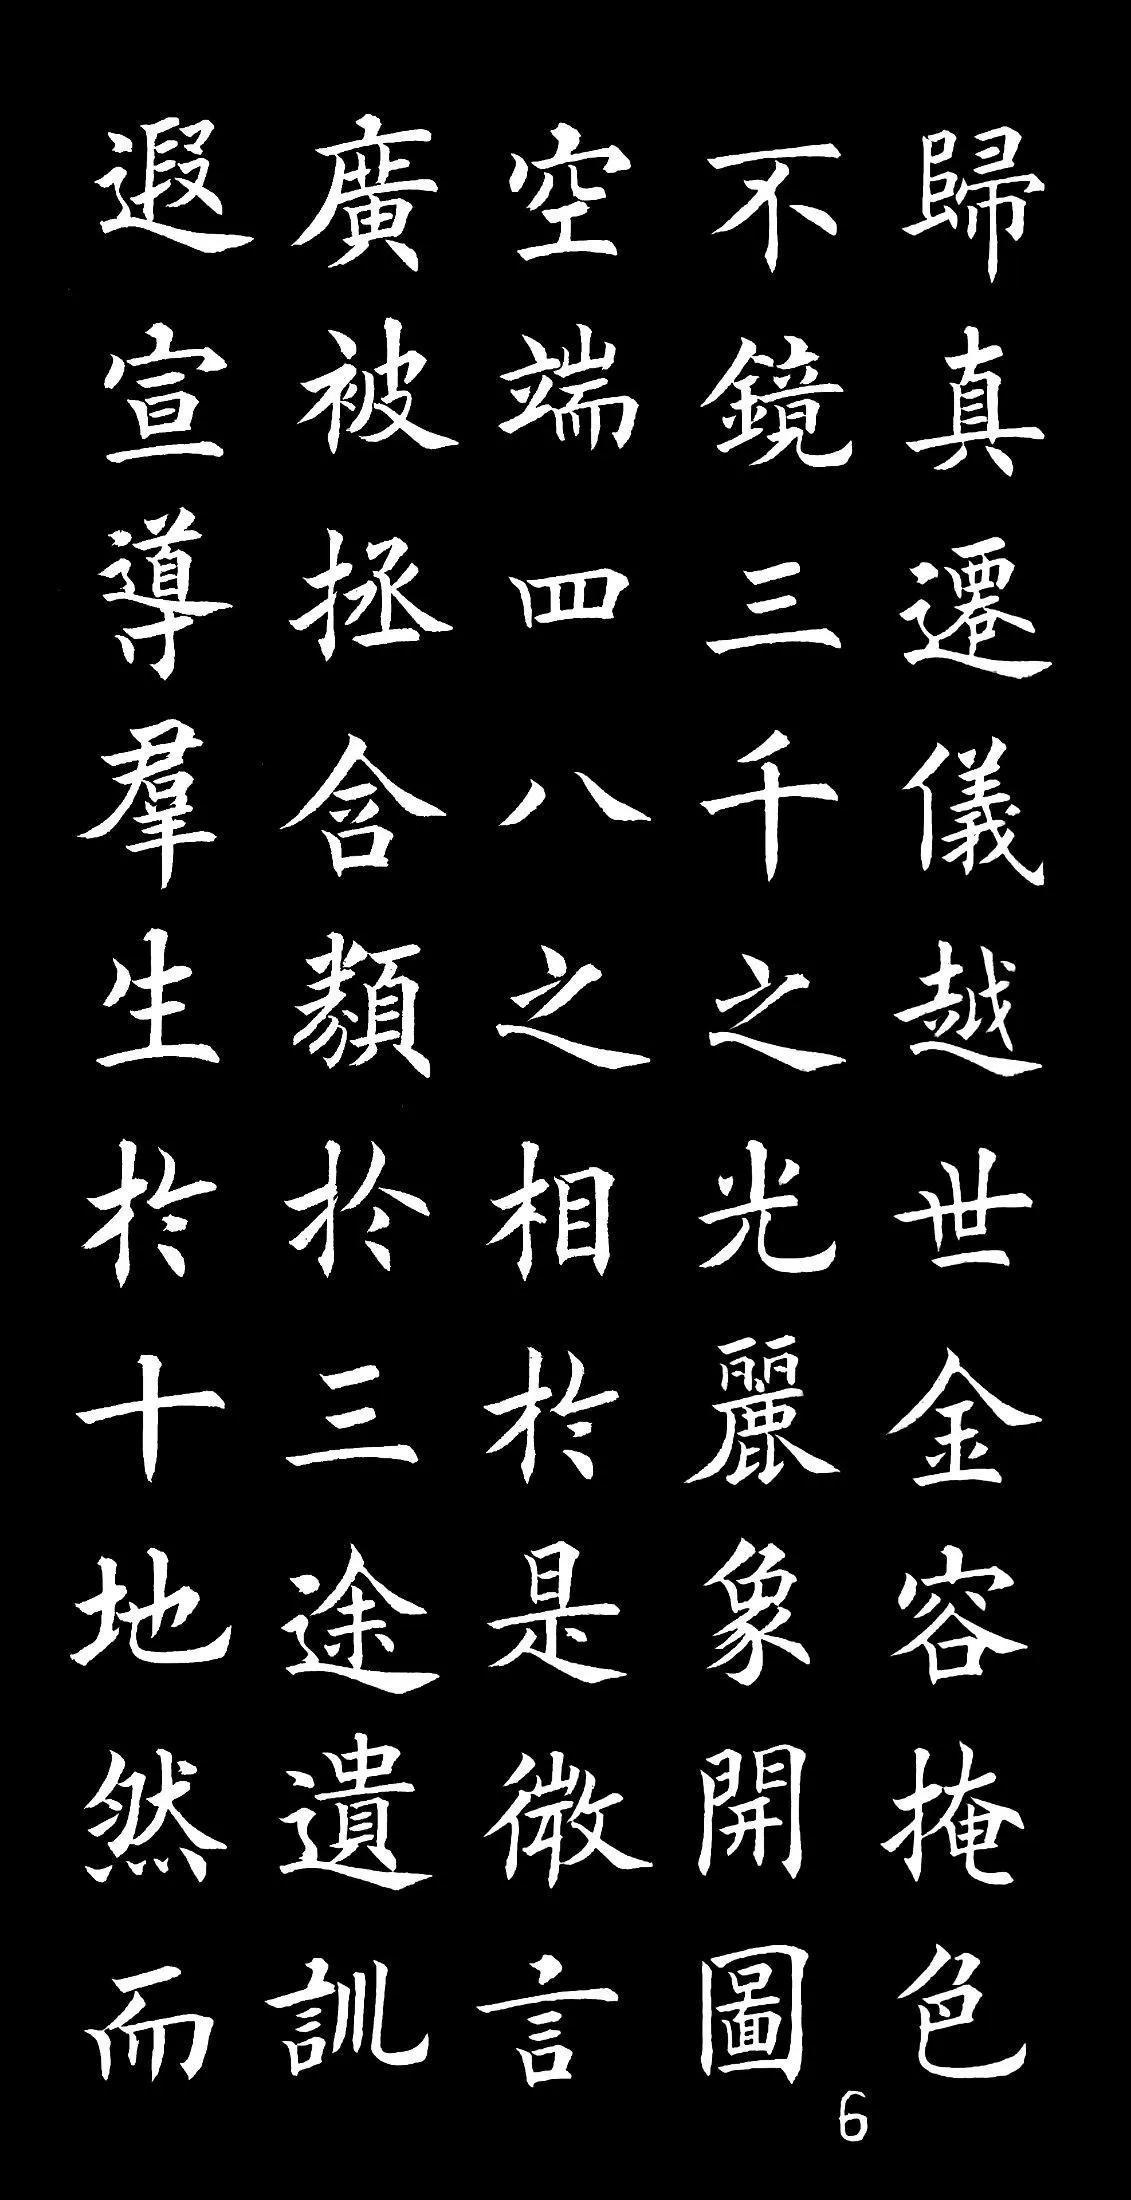 歸真遷儀越世金容掩色
不鏡三千之光麗象開圖
空端四八之相於是微言
廣被拯含類於三途遺訓
遐宣導羣生於十地然而
6